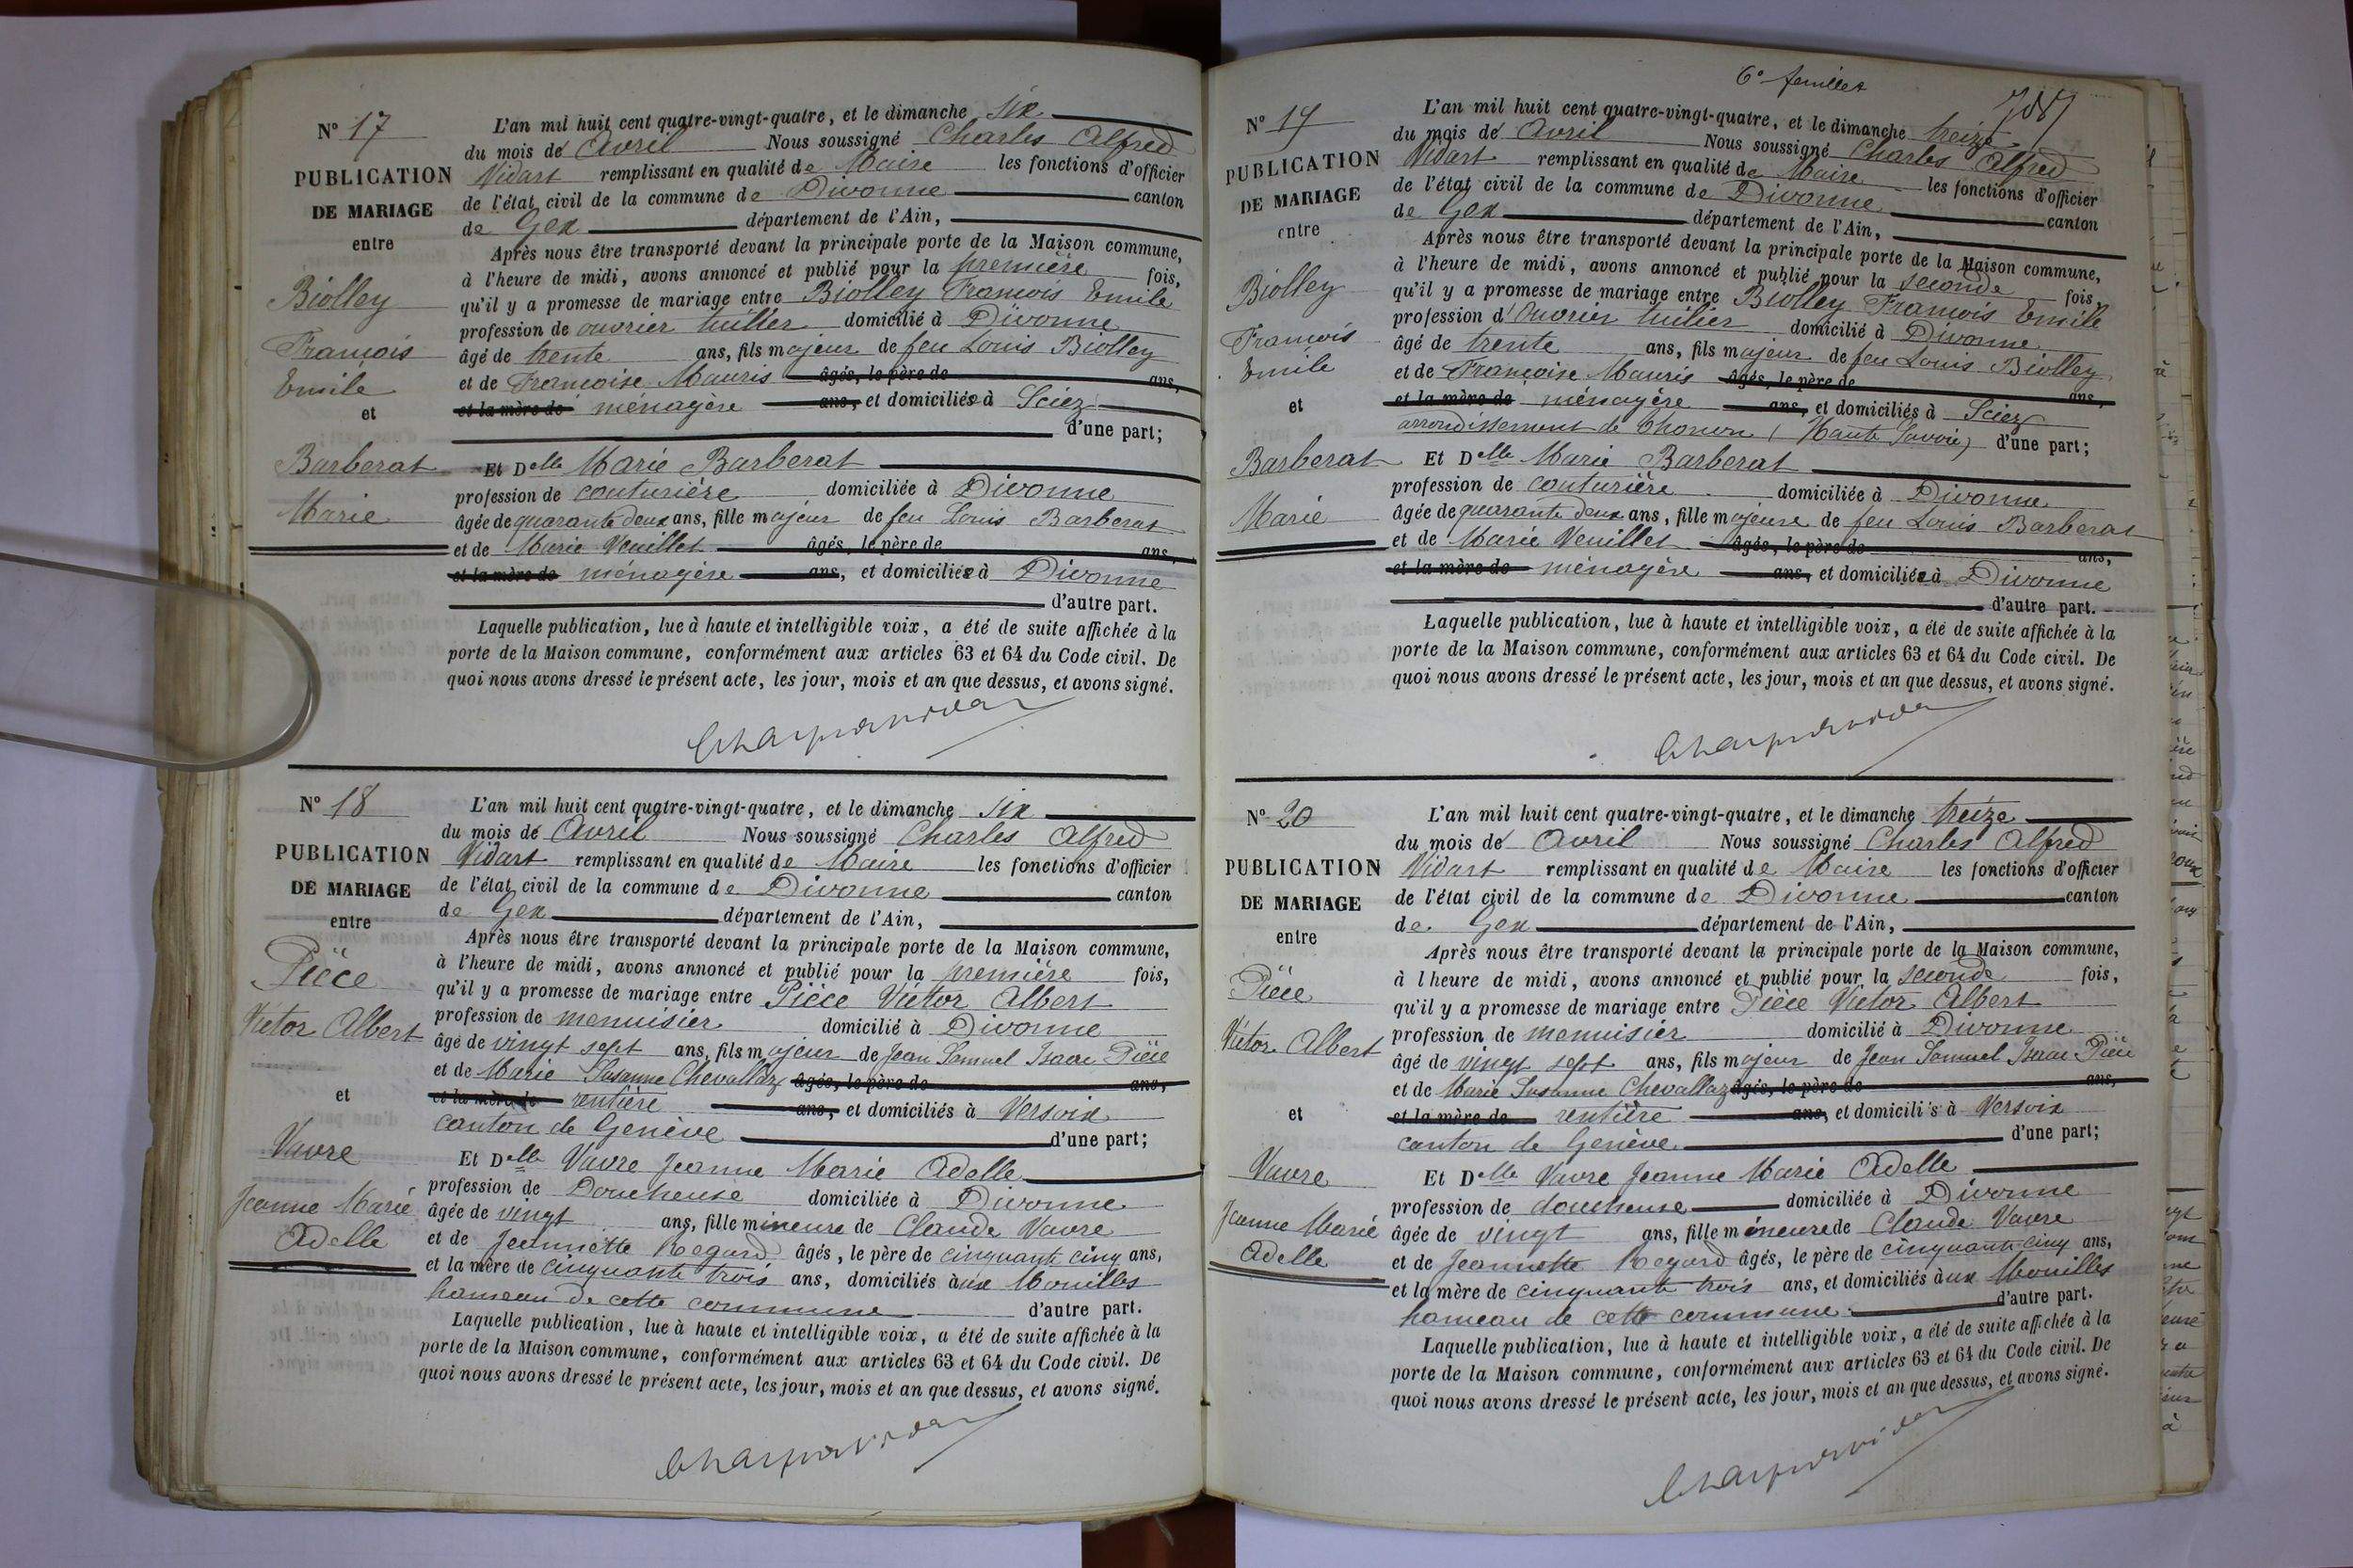 N° 17
PUBLICATION
DE MARIAGE
entre
Biolley
François
Emile
et
Barberat
Marie
L'an mil huit cent quatre-vingt-quatre, et le dimanche six
du mois de Avril Nous soussigné Charles Alfred
Vidart remplissant en qualité de Maire les fonctions d'officier
de l'état civil de la commune de Divonne canton
de Gex département de l'Ain,
Après nous être transporté devant la principale porte de la Maison commune,
à l'heure de midi, avons annoncé et publié pour la première fois,
qu'il y a promesse de mariage entre Biolley François Emile
profession de ouvrier tuilier domicilié à Divonne
âgé de trente ans, fils majeur de feu Louis Biolley
et de Françoise Mauris âgés, le père de ans,
et la mère de ménagère ans, et domiciliés à Sciez
d'une part;
Et Delle Marie Barberat
profession de couturière domiciliée à Divonne
âgée de quarante deux ans, fille majeur de feu Louis Barberat
et de Marie Venillet âgés, le père de ans,
et la mère de ménagère ans, et domiciliée à Divonne
d'autre part.
Laquelle publication, lue à haute et intelligible voix, a été de suite affichée à la
porte de la Maison commune, conformément aux articles 63 et 64 du Code civil. De
quoi nous avons dressé le présent acte, les jour, mois et an que dessus, et avons signé.
N° 18
PUBLICATION
DE MARIAGE
entre
Pièce
Victor Albert
et
Vuvre
Jeanne Marie
Adelle
L'an mil huit cent quatre-vingt-quatre, et le dimanche six
du mois de Avril Nous soussigné Charles Alfred
Vidart remplissant en qualité de Maire les fonctions d'officier
de l'état civil de la commune de Divonne canton
de Gex département de l'Ain,
Après nous être transporté devant la principale porte de la Maison commune,
à l'heure de midi, avons annoncé et publié pour la première fois,
qu'il y a promesse de mariage entre Pièce Victor Albert
profession de menuisier domicilié à Divonne
âgé de vingt sept ans, fils majeur de Jean Samuel Isaac Pièce
et de Marie Susanne Chevallaz âgés, le père de ans,
et la mère de rentière ans, et domiciliés à Versoix
canton de Genève d'une part;
Et Delle Vuvre Jeanne Marie Adelle
profession de Doucheuse domiciliée à Divonne
âgée de vingt ans, fille mineure de Claude Vuvre
et de Jeannette Regard âgés, le père de cinquante cinq ans,
et la mère de cinquante trois ans, domiciliés aux Mouilles
hameau de cette commune d'autre part.
Laquelle publication, lue à haute et intelligible voix, a été de suite affichée à la
porte de la Maison commune, conformément aux articles 63 et 64 du Code civil. De
quoi nous avons dressé le présent acte, les jour, mois et an que dessus, et avons signé.
6e feuillet
N° 19
PUBLICATION
DE MARIAGE
entre
Biolley
François
Emile
et
Barberat
Marie
L'an mil huit cent quatre-vingt-quatre, et le dimanche treize
du mois de Avril Nous soussigné Charles Alfred
Vidart remplissant en qualité de Maire les fonctions d'officier
de l'état civil de la commune de Divonne canton
de Gex département de l'Ain,
Après nous être transporté devant la principale porte de la Maison commune,
à l'heure de midi, avons annoncé et publié pour la seconde fois,
qu'il y a promesse de mariage entre Biolley François Emile
profession d'Ouvrier tuilier domicilié à Divonne
âgé de trente ans, fils majeur de feu Louis Biolley
et de Françoise Mauris âgés, le père de ans,
et la mère de ménagère ans, et domiciliés à Sciez
arrondissement de Thonon (Haute Savoie) d'une part;
Et Delle Marie Barberat
profession de couturière domiciliée à Divonne
âgée de quarante deux ans, fille majeure de feu Louis Barberat
et de Marie Venillet âgés, le père de ans,
et la mère de ménagère ans, et domiciliée à Divonne
d'autre part.
Laquelle publication, lue à haute et intelligible voix, a été de suite affichée à la
porte de la Maison commune, conformément aux articles 63 et 64 du Code civil. De
quoi nous avons dressé le présent acte, les jour, mois et an que dessus, et avons signé.
N° 20
PUBLICATION
DE MARIAGE
entre
Pièce
Victor Albert
et
Vuvre
Jeanne Marie
Adelle
L'an mil huit cent quatre-vingt-quatre, et le dimanche treize
du mois de Avril Nous soussigné Charles Alfred
Vidart remplissant en qualité de Maire les fonctions d'officier
de l'état civil de la commune de Divonne canton
de Gex département de l'Ain,
Après nous être transporté devant la principale porte de la Maison commune,
à l'heure de midi, avons annoncé et publié pour la seconde fois,
qu'il y a promesse de mariage entre Pièce Victor Albert
profession de menuisier domicilié à Divonne
âgé de vingt sept ans, fils majeur de Jean Samuel Isaac Pièce
et de Marie Susanne Chevallaz âgés, le père de ans,
et la mère de rentière ans, et domicili s à Versoix
canton de Genève d'une part;
Et Delle Vuvre Jeanne Marie Adelle
profession de doucheuse domiciliée à Divonne
âgée de vingt ans, fille mineure de Claude Vuvre
et de Jeannette Regard âgés, le père de cinquante cinq ans,
et la mère de cinquante trois ans, et domiciliés aux Mouilles
hameau de cette commune d'autre part.
Laquelle publication, lue à haute et intelligible voix, a été de suite affichée à la
porte de la Maison commune, conformément aux articles 63 et 64 du Code civil. De
quoi nous avons dressé le présent acte, les jour, mois et an que dessus, et avons signé.